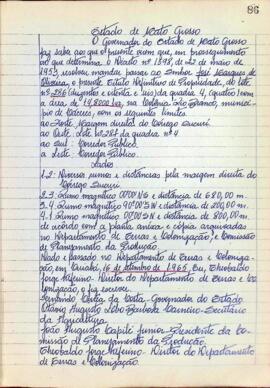 86
Estado de Mato Grosso
O Governador do Estado de Mato Grosso
faz saber aos que o presente virem que, em prosseguimento
ao que determina o Decreto nº 1898, de 22 de maio
de 1953, resolveu mandar passar ao Senhor José Marques de
Oliveira, o presente Título Definitivo de Propriedade, do lote
nº 286 (duzentos e oitenta e seis) da quadra 4, (quatro) com
a área de 19,8000 ha, na Colônia Rio Branco, municí-
pio de Cáceres, com os seguintes limites
ao Norte Margem direita do Córrego Sucuri.
ao Oeste Lote nº 287 da quadra nº 4
ao Sul Corredor Público.
a Leste Corredor Público.
Lados
1.2 = Diversos rumos e distâncias pela margem direita do
Córrego Sucuri
2.3 = Rumo magnético 00°00'N S e distância de 680,00 m.
3.4 = Rumo magnético 90°00'S N e distância de 200,00 m.
4.1 = Rumo magnético 00°00'S N e distância de 800,00 m.
de acordo com a planta anexa e cópia arquivadas
no Departamento de Terras e Colonização, e Comissão
de Planejamento da Produção.
Dado e passado no Departamento de Terras e Coloniza-
ção, em Cuiabá, 16 de setembro de 1965, Eu, Theobaldo
Jorge Diretor do Departamento de Terras e Co-
lonização, o fiz escrever.
Fernando Corrêa da Costa - Governador do Estado
Otávio Augusto Lobo Barbosa Carneiro - Secretário
da Agricultura
João Augusto Capilé Junior - Presidente da Co-
missão de Planejamento da Produção.
Theobaldo Jorge - Diretor do Departamento
de Terras e Colonização.